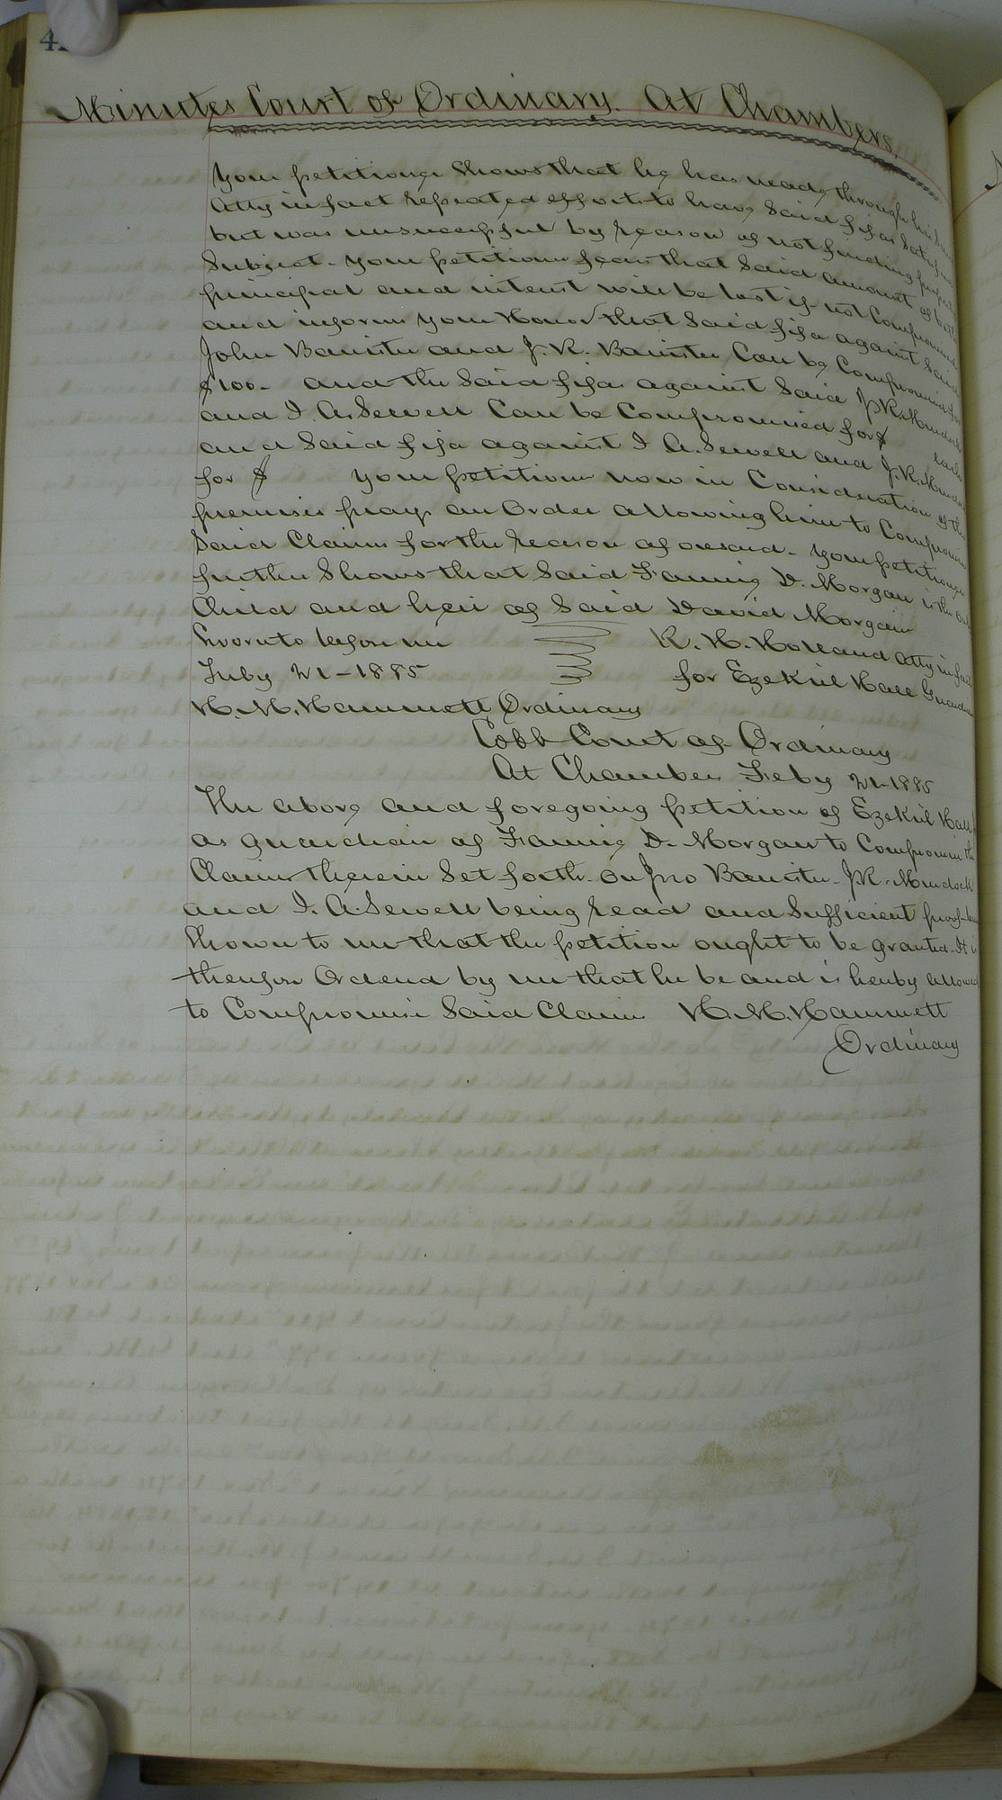 Minutes Court of Ordinary. At Chambers.
Your petitioner Shows that he has made through his
Atty in fact repeated efforts to have Said fifas Satisfied
but was unsuccessful by reason of not finding property
Subject. Your petitioner fears that Said amount of both
principal and interest will be lost if not Compromised
and informs your Honor that Said fifa against Said
John Banister and J. R. Banister Can be Compromised for
$100. and the Said fifa against Said J. R. Murdock
and I. A. Sewell Can be Compromised for $ each
and Said fifa against I A. Sewell and J. R. Murdock
for $ Your petitioner now in Consideration of the
premises prays an Order allowing him to Compromise
Said Claims for the reason aforesaid. Your petitioner
further Shows that Said Fannie D. Morgan is the only
Child and heir of Said David Morgan
Sworn to before me R. H. Holland Atty in fact
Feby 21-1885 for Ezekiel Hall Guardian
H. M. Hammett Ordinary
Cobb Court of Ordinary
At Chambers Feby 21-1885
The above and foregoing petition of Ezekiel Hall
as guardian of Fannie D. Morgan to Compromise the
Claims therein Set forth. on Jno Banister. J. R. Murdock
and I. A. Sewell being read and Sufficient proof
Shown to me that the petition ought to be granted. It is
therefore Ordered by me that he be and is hereby allowed
to Compromise Said Claims H. M. Hammett
Ordinary